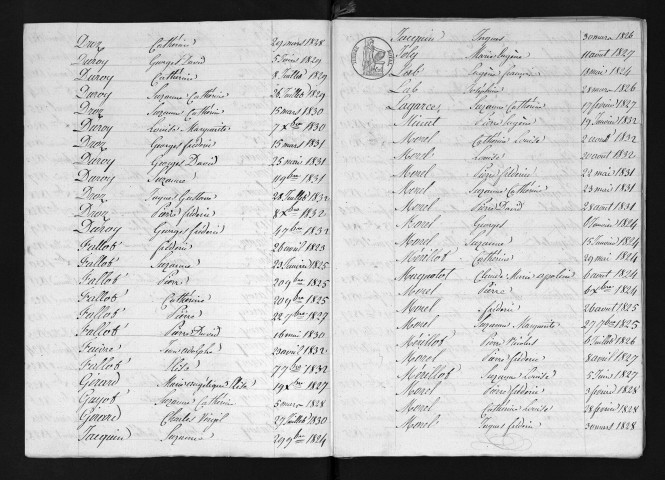 Droz Catherine 29 mars 1828
Duroy Georges David 5 1829
Duroy Catherine 8 Juillet 1829
Duroy Suzanne Catherine 26 Juillet 1829
Droz Suzanne Catherine 15 mars 1830
Duroy Louise Marguerite 7 Xbre 1830
Droz Georges frédéric 15 mars 1831
Duroy Georges David 25 mai 1831
Duroy Suzanne 1831
Droz Jaques Gustave 28 Juillet 1832
Droz Pierre frédéric 8 Xbre 1832
Duroy Georges frédéric 4 7bre 1832
Fallot frédéric 26 avril 1823
Fallot Suzanne 23 Janvier 1825
Fallot Pierre 20 9bre 1825
Fallot Catherine 20 9bre 1825
Fallot Pierre 22 9bre 1827
Fallot Pierre David 16 mai 1830
Faivre Jean adolphe 23 avril 1832
Fallot Elise 7 7bre 1832
Gérard Marie angélique Elisa 19 Xbre 1827
Guyot Suzanne Catherine 5 mars 1828
Charles Virgil 27 Juillet 1830
Jacquin Suzanne 29 9bre 1824
Jacquin Jaques 30 mars 1826
Joly Marie Eugène 11 aout 1827
Eugène 18 mai 1824
Joséphine 28 mars 1826
Lagarce Suzanne Catherine 17 février 1827
Pierre Eugène 19 Janvier 1832
Morel Catherine Louise 2 avril 1832
Morel Louise 20 aout 1832
Morel Pierre frédéric 22 mai 1831
Morel Suzanne Catherine 23 mai 1831
Morel Pierre David 28 avril 1831
Morel Georges 6 Janvier 1824
Morel Suzanne 15 Janvier 1824
Mérillot Catherine 29 mai 1824
Claude Marie 6 avril 1824
Morel Pierre 6 Xbre 1824
Morel frédéric 26 avril 1825
Morel Suzanne Marguerite 27 9bre 1825
Mérillot Pierre Nicolas 6 Juillet 1826
Morel Pierre frédéric 8 avril 1827
Mérillot Suzanne Louise 5 Juin 1827
Morel Pierre frédéric 3 février 1828
Morel Catherine Louise 28 février 1828
Morel Jaques frédéric 30 mars 1828